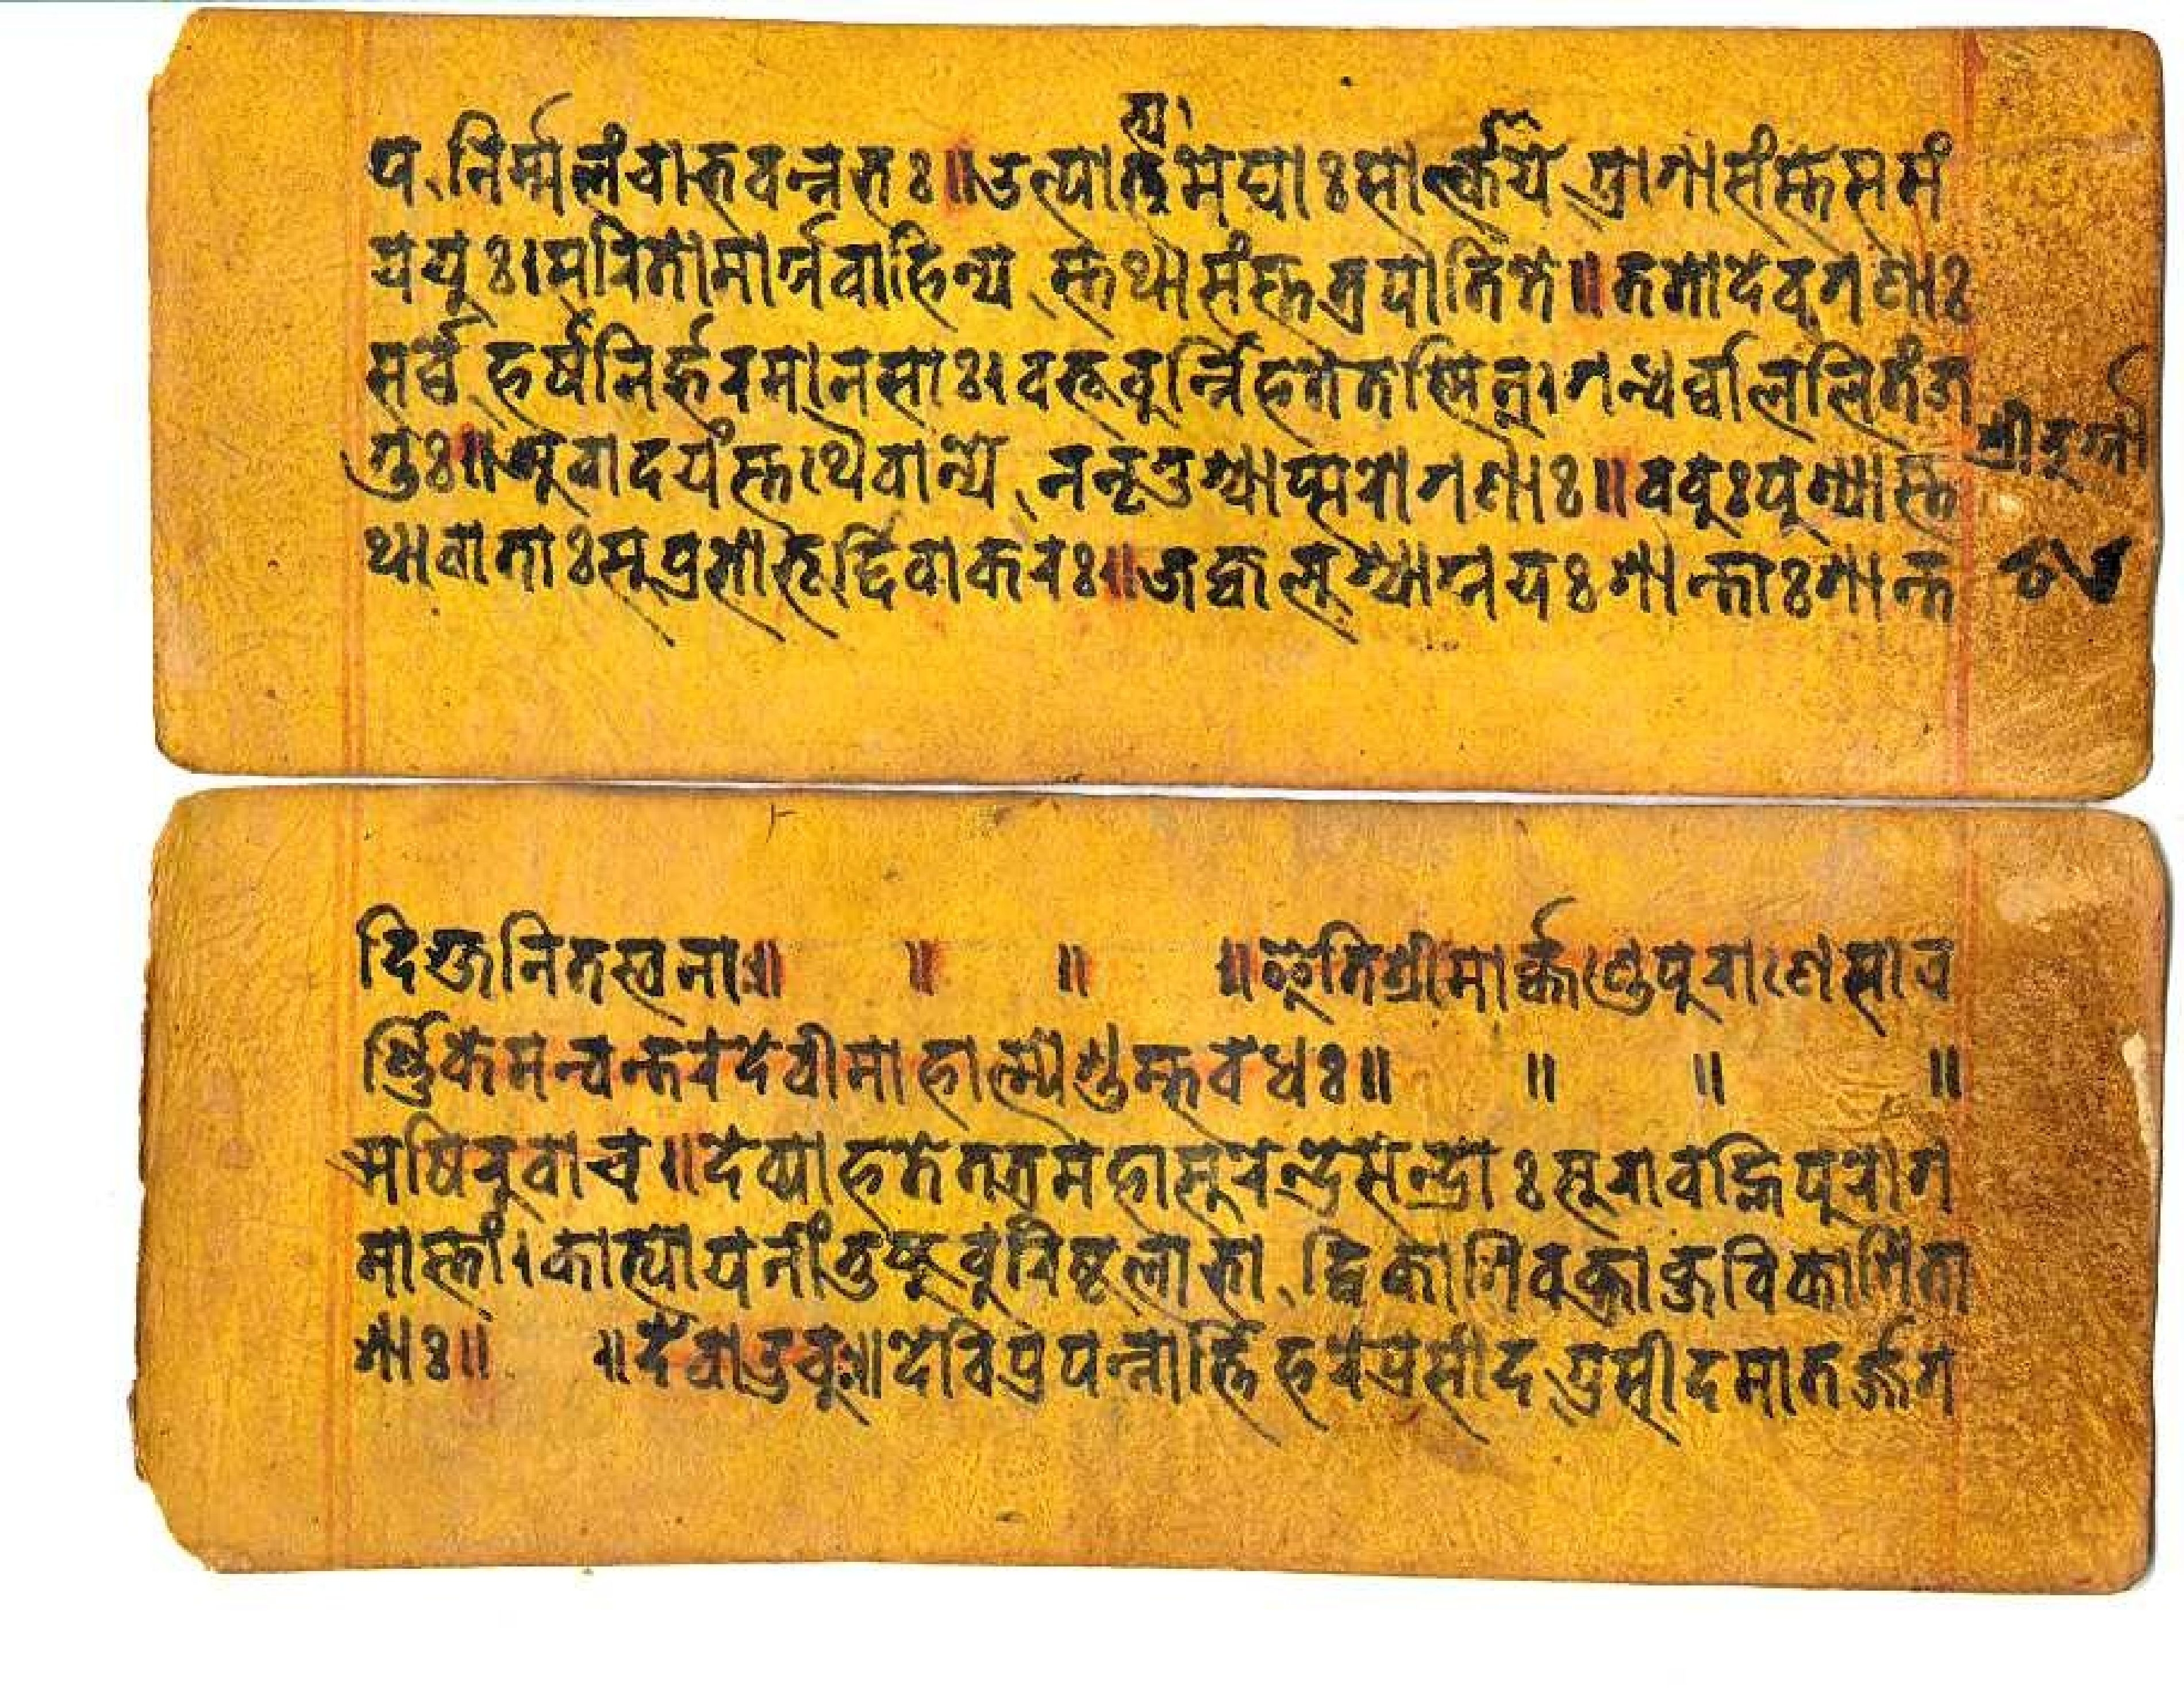 प, निर्म्मलंचाभवन्नभः॥उत्पातमेघाःसोल्कायेप्रागासंस्तेसमं
ययुः।सरितोमार्गवाहिन्य स्तथासंस्तत्रपातिते॥ततोदेवगणाः
सर्वे हर्षनिर्भरमानसाः।वभूवुर्न्निहतेतस्मिन्।गन्धर्व्वाललितंज
गुः॥अवादयंस्तथैवान्ये, ननृतुश्चाप्सरोगणाः॥ववुःपुण्यास्त
थावाताःसुप्रभोभूद्दिवाकरः॥जज्वलुश्चाग्नयःशान्ताःशान्त
श्रीदुर्गा
दिग्जनितस्वनाः॥ ॥ ॥ ॥इतिश्रीमार्क्कण्डेपुराणेसाव
र्ण्णिकेमन्वन्तरेदेवीमाहात्म्येशुम्भवधः॥ ॥ ॥ ॥
ऋषिरुवाच॥देव्याहतेतत्रमहासुरेन्द्रेसेन्द्राःसुरावह्निपुरोग
मास्तां।कात्यायनींतुष्टुवुरिष्टलाभा, द्विकाशिवक्त्राब्जविकाशिता
शाः॥ ॥देवाउचुः॥देविप्रपन्नार्त्तिहरेप्रसीदप्रसीदमातर्ज्जग